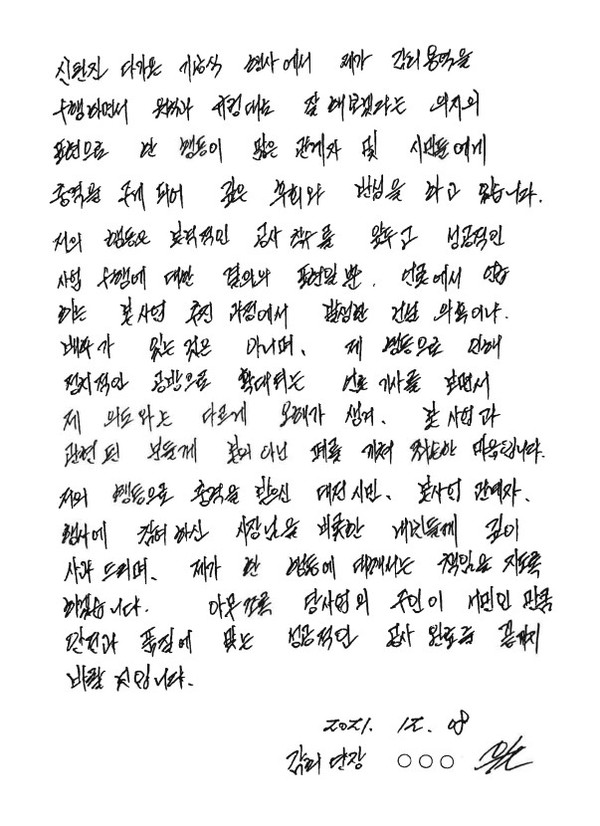 기공식 행사에서 제가 감리용역을
수행하면서 잘 해보겠다는 의지의
표현으로 한 행동이 많은 관계자 및 시민들에게
충격을 주게 되어 깊은 후회와 반성을 하고 있습니다.
저의 행동은 본격적인 공사 착수를 앞두고 성공적인
사업 수행에 대한 결의의 표현일 뿐, 언론에서 언급
하는 본사업 추진 과정에서 발생한 건널 의혹이나
배후가 있는 것은 아니며, 제 행동으로 인해
정치적인 공방으로 확대되는 언론 기사를 보면서
제 의도와는 다르게 오해가 생겨, 본 사업과
관련된 분들께 본의 아닌 폐를 끼쳐 죄송한 마음입니다.
저의 행동으로 충격을 받으신 대전 시민, 본사업 관계자,
행사에 참여하신 시장님을 비롯한 내빈들께 깊이
사과 드리며, 제가 한 행동에 대해서는 책임을 지도록
하겠습니다. 아무쪼록 당사업의 주인이 시민인 만큼
안전과 품질에 맞는 성공적인 공사 완료를 끝까지
바랄 것입니다.
2021. 12. 08
감리단장 ○○○